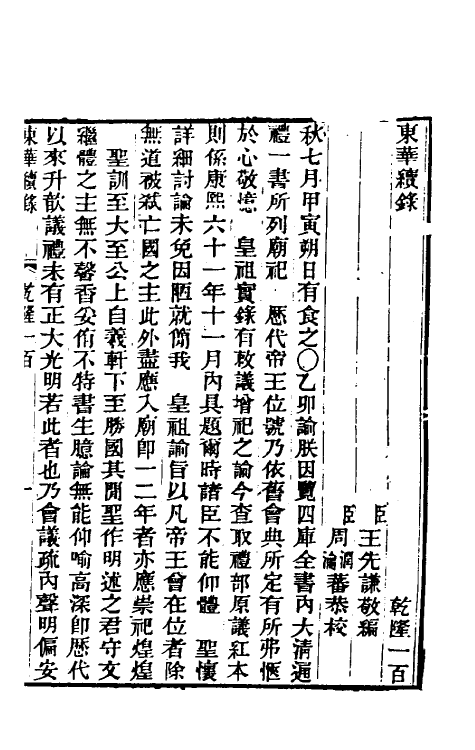 東華續錄 乾隆一百
臣王先謙敬編
臣周潤蕃周瀹蕃恭校
秋七月甲寅朔日有食之〇乙卯諭朕因覽四庫全書內大清通
禮一書所列廟祀 歷代帝王位號乃依舊會典所定有所弗愜
於心敬憶 皇祖實錄有敕議增祀之諭今查取禮部原議紅本
則係康熙六十一年十一月內具題爾時諸臣不能仰體 聖懷
詳細討論未免因陋就簡我 皇祖諭旨以凡帝王曾在位者除
無道被弒亡國之主此外盡應入廟卽一二年者亦應崇祀煌煌
聖訓至大至公上自羲軒下至勝國其閒聖作明述之君守文
繼體之主無不馨香妥侑不特書生臆論無能仰喻高深卽歷代
以來升歆議禮未有正大光明若此者也乃會議疏內聲明偏安
東華續錄 乾隆一百 一